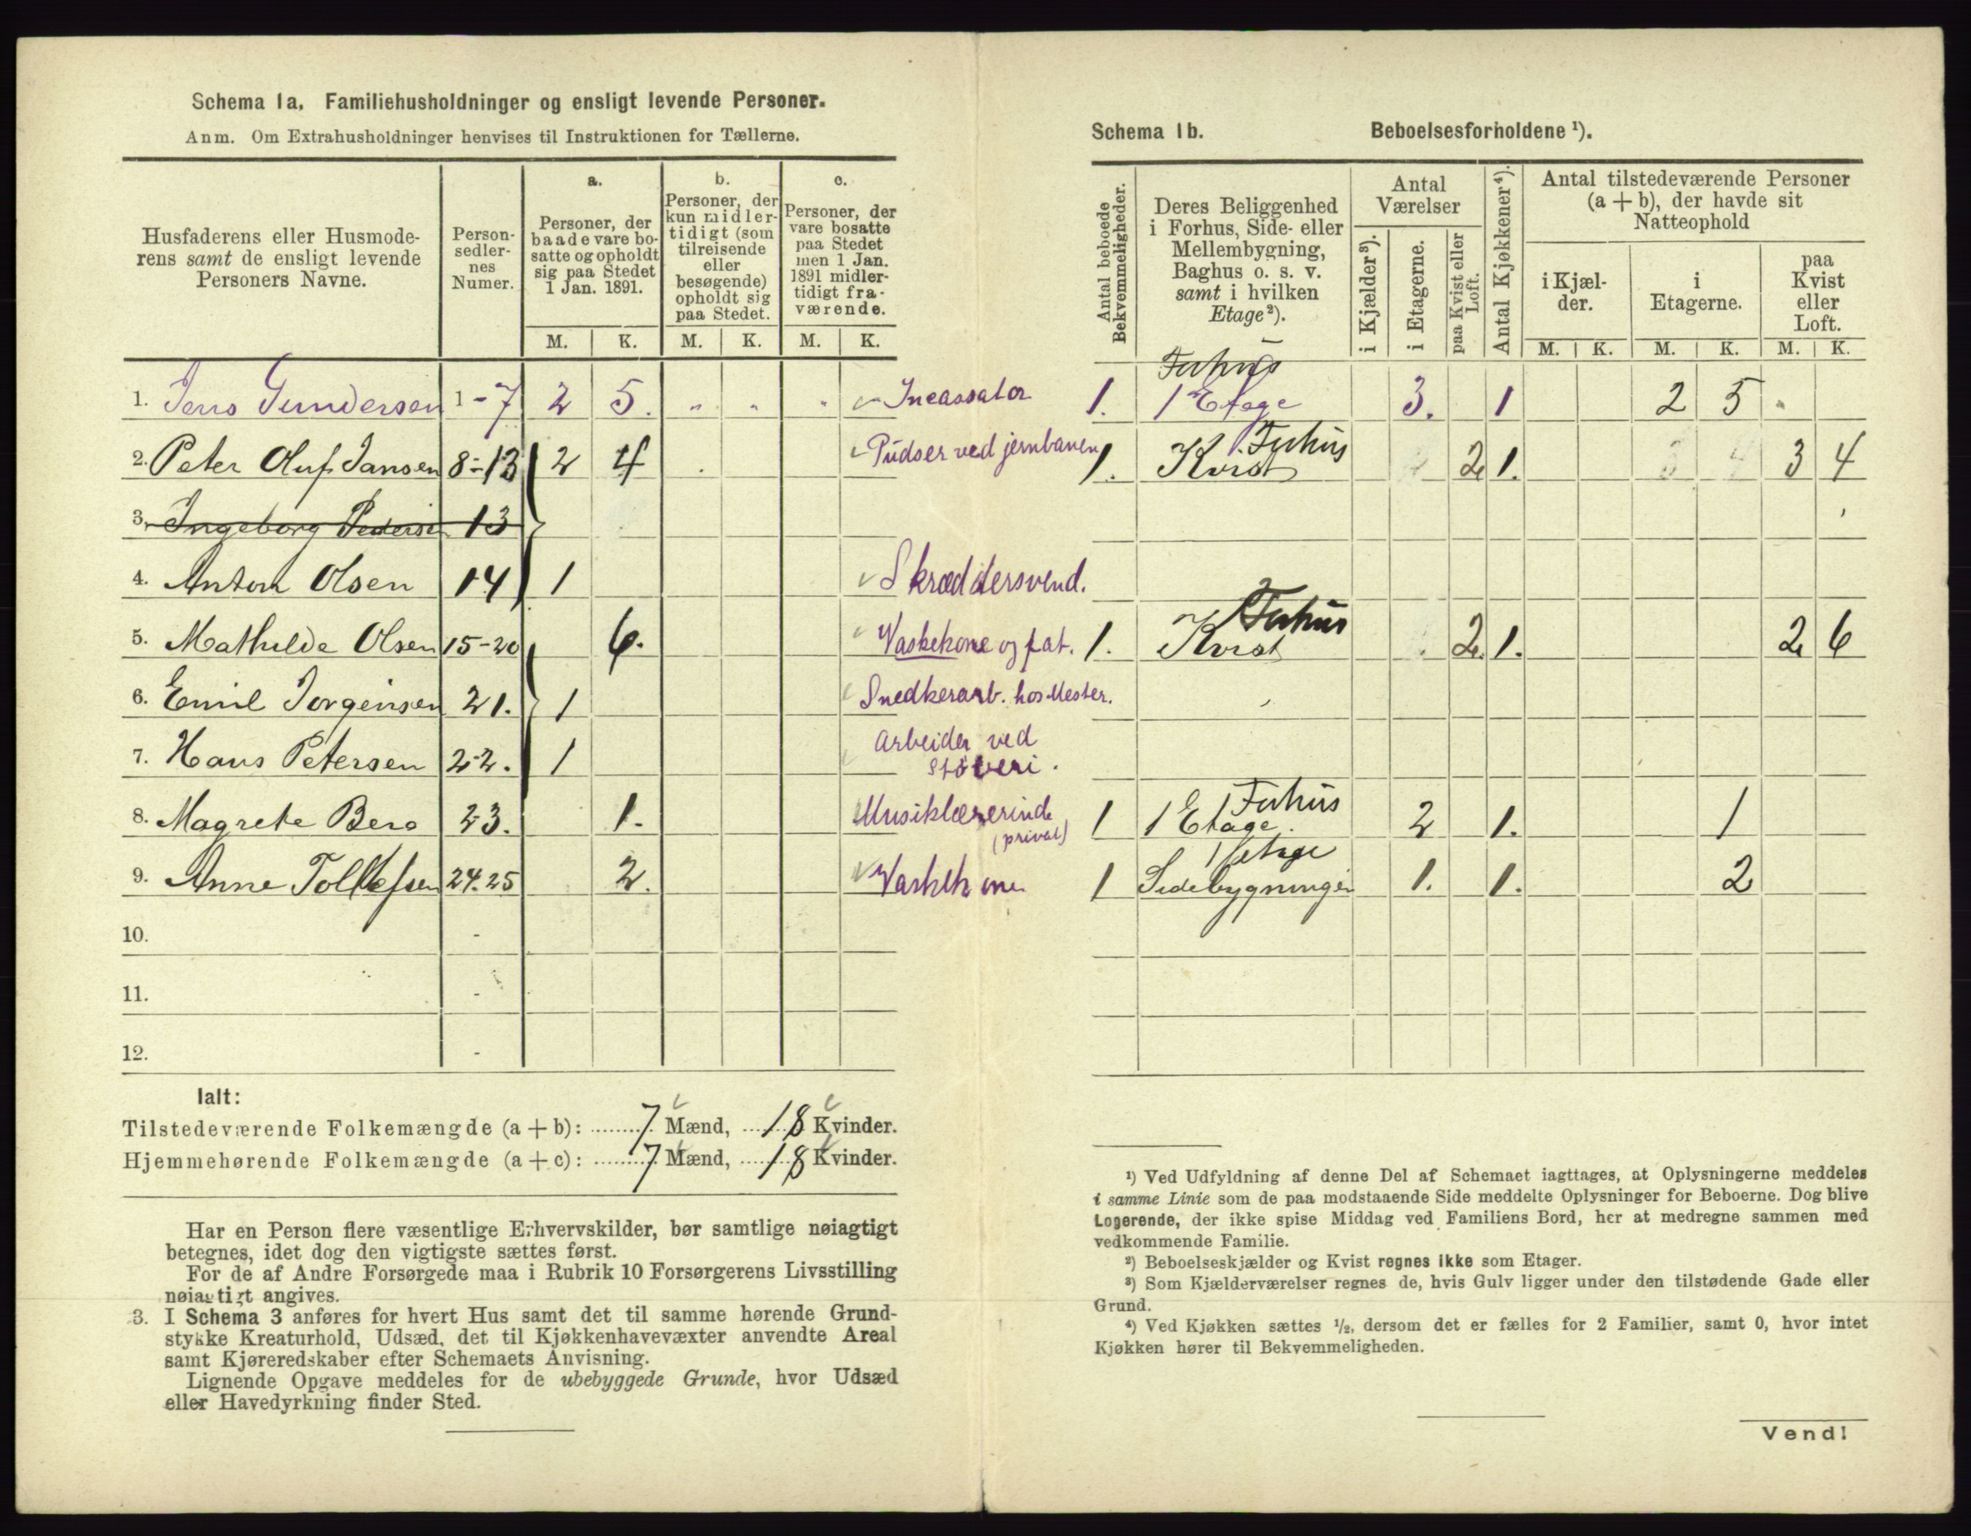 Schema 1a. Familiehusholdninger og ensligt levende Personer.
Anm. Om Extrahusholdninger henvises til Instruktionen for Tællerne.
Husfaderens eller Husmode-
rens samt de ensligt levende
Personers Navne.
Person-
sedler-
nes
Numer.
a.
Personer, der
baade vare bo-
satte og opholdt
sig paa Stedet
1 Jan. 1891.
b.
Personer, der
kun midler-
tidigt (som
tilreisende
eller
besøgende)
opholdt sig
paa Stedet.
c.
Personer, der
vare bosatte
paa Stedet
men 1 Jan.
1891 midler-
tidigt fra-
værende.
M. K. M. K. M. K.
1. Jens Gundersen 1-7 2 5. " " " Incassator
2. Peter Oluf Jansen 8-13 2 4 Pudser ved jernbanen
3. Ingeborg Pederse 13
4. Anton Olsen 14 1 Skræddersvend.
5. Mathilde Olsen 15-20 6. Vaskekone og fat.
6. Emil Jorgensen 21. 1 Snedkerarb. hos Mester.
7. Hans Petersen 22. 1 Arbeider ved
8. Magrete Berg 23. 1. Musiklærerinde
(privat)
9. Anne Tollefsen 24.25 2. Vaskekone
10. -
11. -
12. -
Ialt:
Tilstedeværende Folkemængde (a + b): 7 Mænd, 18 Kvinder.
Hjemmehørende Folkemængde (a + c): 7 Mænd, 18 Kvinder.
Har en Person flere væsentlige Erhvervskilder, bør samtlige nøiagtigt
betegnes, idet dog den vigtigste sættes først.
For de af Andre Forsørgede maa i Rubrik 10 Forsørgerens Livsstilling
nøiagtigt angives.
3. I Schema 3 anføres for hvert Hus samt det til samme hørende Grund-
stykke Kreaturhold, Udsæd, det til Kjøkkenhavevæxter anvendte Areal
samt Kjøreredskaber efter Schemaets Anvisning.
Lignende Opgave meddeles for de ubebyggede Grunde, hvor Udsæd
eller Havedyrkning finder Sted.
Schema 1b. Beboelsesforholdene ¹).
Antal beboede
Bekvemmeligheder.
Deres Beliggenhed
i Forhus, Side- eller
Mellembygning,
Baghus o. s. v.
samt i hvilken
Etage²).
Antal
Værelser
i Kjælder³).
i Etagerne.
paa Kvist eller
Loft.
Antal Kjøkkener⁴).
Antal tilstedeværende Personer
(a + b), der havde sit
Natteophold
i Kjæl-
der.
i
Etagerne.
paa
Kvist
eller
Loft.
M. K. M. K. M. K.
Forhus
1. 1 Etage 3. 1 2 5
Forhus
1. Kvist 2 1. 3 4
Forhus
1. Kvist 2. 1. 2 6
Forhus
1 1 Etage. 2 1. 1
1 Etage
1 Sidebygningen 1. 1. 2
¹) Ved Udfyldning af denne Del af Schemaet iagttages, at Oplysningerne meddeles
i samme Linie som de paa modstaaende Side meddelte Oplysninger for Beboerne. Dog blive
Logerende, der ikke spise Middag ved Familiens Bord, her at medregne sammen med
vedkommende Familie.
²) Beboelseskjælder og Kvist regnes ikke som Etager.
³) Som Kjælderværelser regnes de, hvis Gulv ligger under den tilstødende Gade eller
Grund.
⁴) Ved Kjøkken sættes ½, dersom det er fælles for 2 Familier, samt 0, hvor intet
Kjøkken hører til Bekvemmeligheden.
Vend!